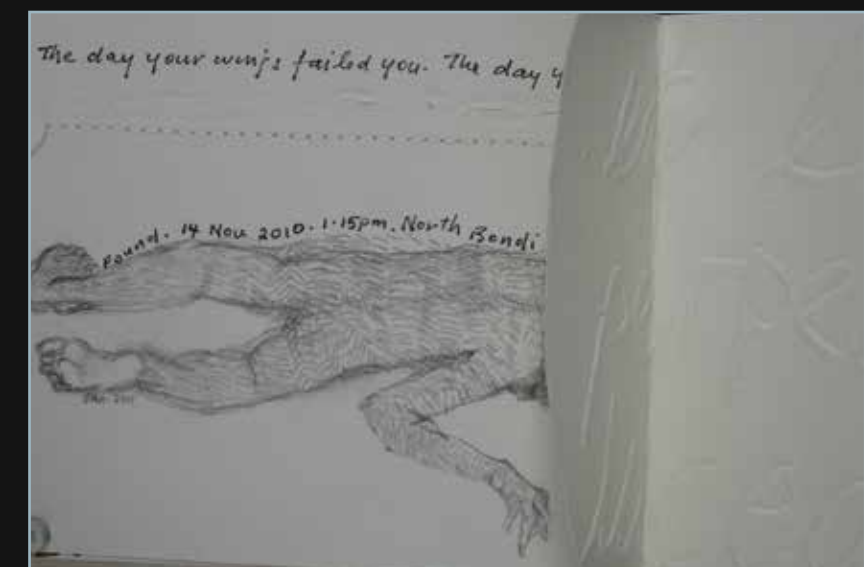 The day your wings failed you. The day y
Found. 14 Nov 2010. 1.15pm. North Bondi